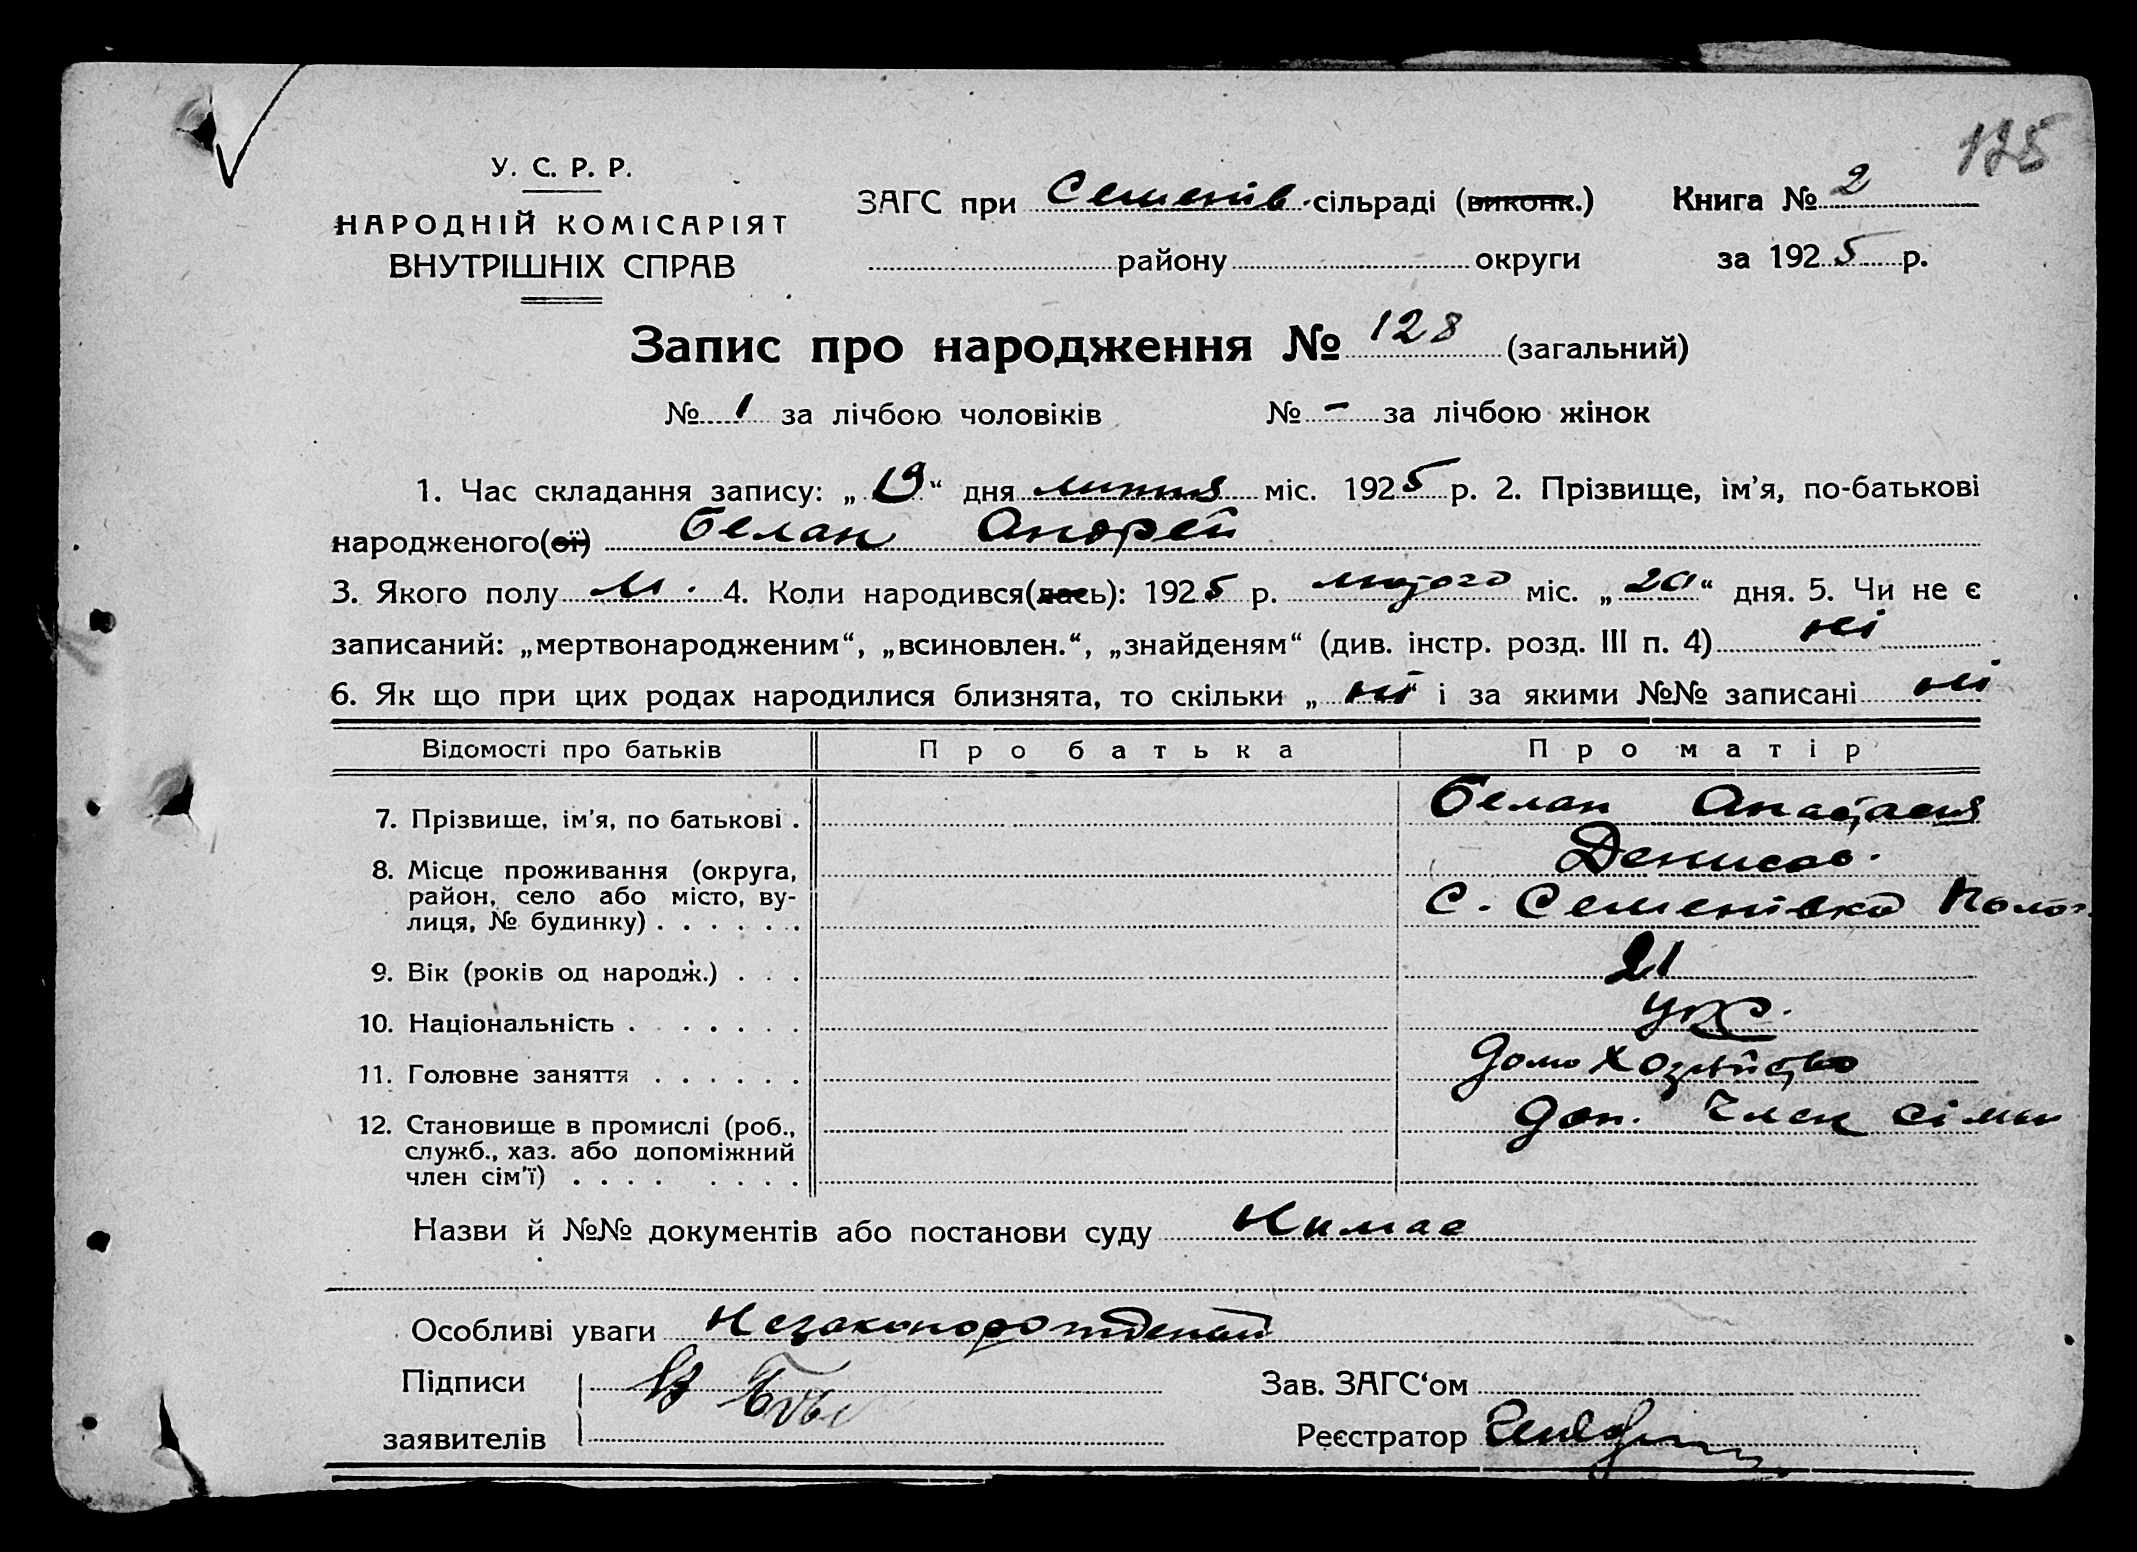 125
У. С. Р. Р.
НАРОДНІЙ КОМІСАРІЯТ
ВНУТРІШНІХ СПРАВ
ЗАГС при Семенів. сільраді (виконк.)
району округи
Книга № 2
за 1925 р.
Запис про народження № 128 (загальний)
№ 1 за лічбою чоловіків № - за лічбою жінок
1. Час складання запису: „19“ дня липня міс. 1925 р. 2. Прізвище, ім’я, по-батькові
народженого(ої) Белан Андрей
3. Якого полу М. 4. Коли народився(лась): 1925 р. лютого міс. „20“ дня. 5. Чи не є
записаний: „мертвонародженим“, „всиновлен.“, „знайденям“ (див. інстр. розд. III п. 4) ні
6. Як що при цих родах народилися близнята, то скільки „ні“ і за якими №№ записані ні
Відомості про батьків Про батька Про матір
7. Прізвище, ім’я, по батькові . Белан Анастасия
Денисов.
8. Місце проживання (округа,
район, село або місто, ву-
лиця, № будинку) . . . . . . С. Семенівка Полог.
9. Вік (років од народж.) . . . 21
10. Національність . . . . . . . укр.
11. Головне заняття . . . . . . домохозяйство
12. Становище в промислі (роб.,
служб., хаз. або допоміжний
член сім’ї) . . . . . . . . доп. член сімьи
Назви й №№ документів або постанови суду Нимає
Особливі уваги Незаконорожденый
Підписи
заявителів
Зав. ЗАГС‘ом
Реєстратор